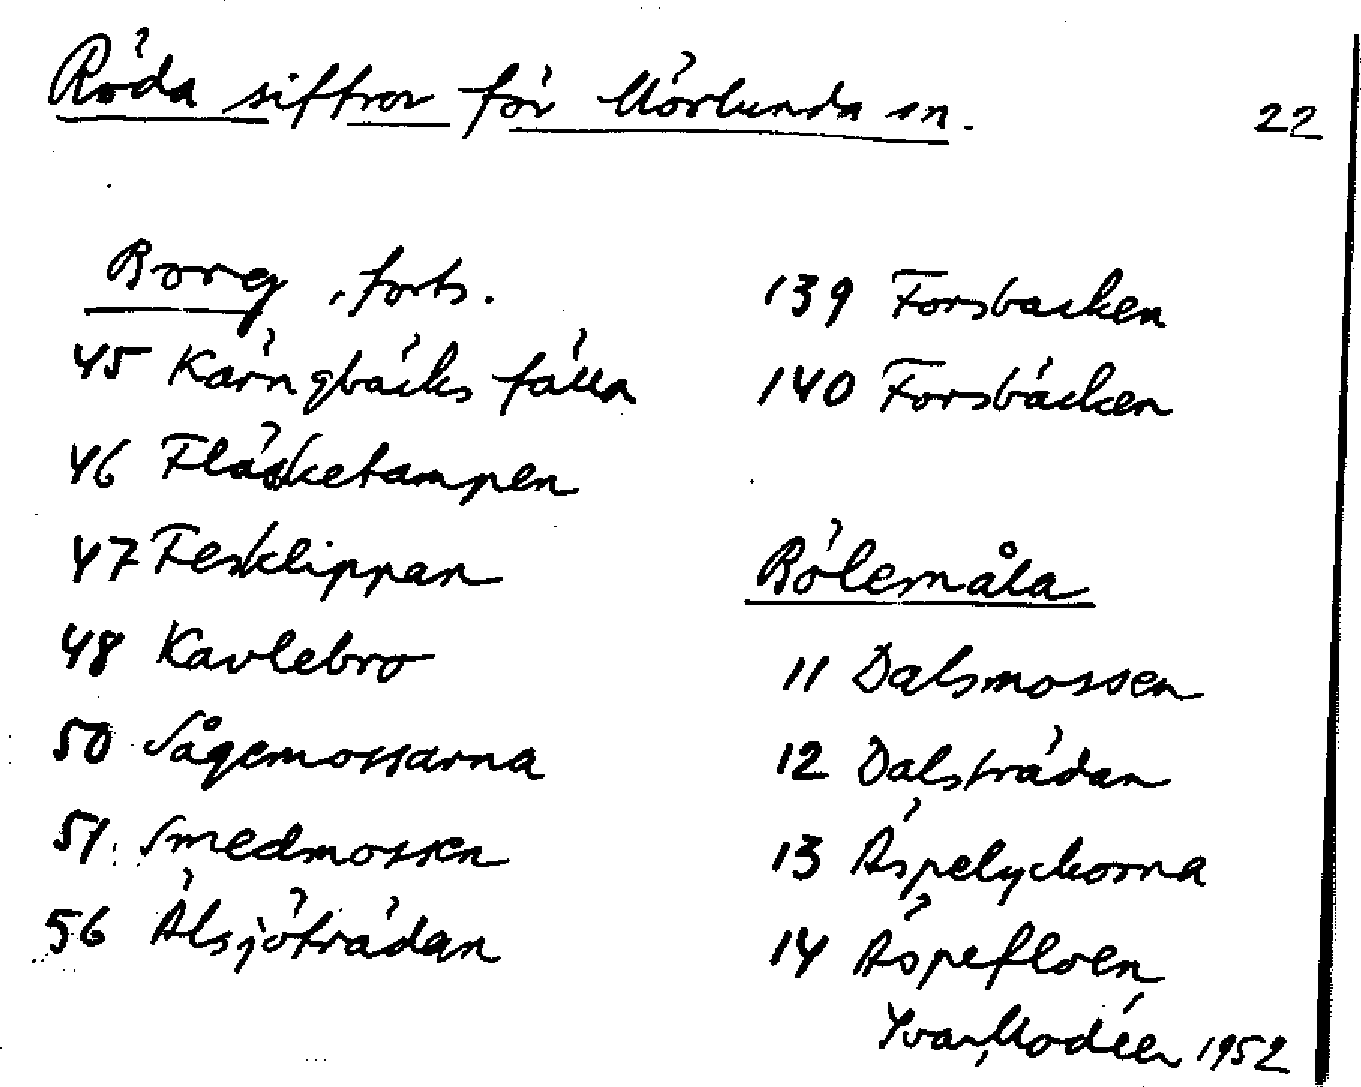 Röda siffror för Mörlunda sn.
22
Borg, forts.
45 Kärngbäcks fälla
46 Fläsketampen
47 Feskklippan
48 Kavlebro
50 Sågemossarna
51 Smedmossen
56 Älsjöträdan
139 Forsbacken
140 Forsbäcken
Bölemåla
11 Dalsmossen
12 Dalsträdan
13 Äspelyckorna
14 Äspefloen
Yvar Modéer 1952